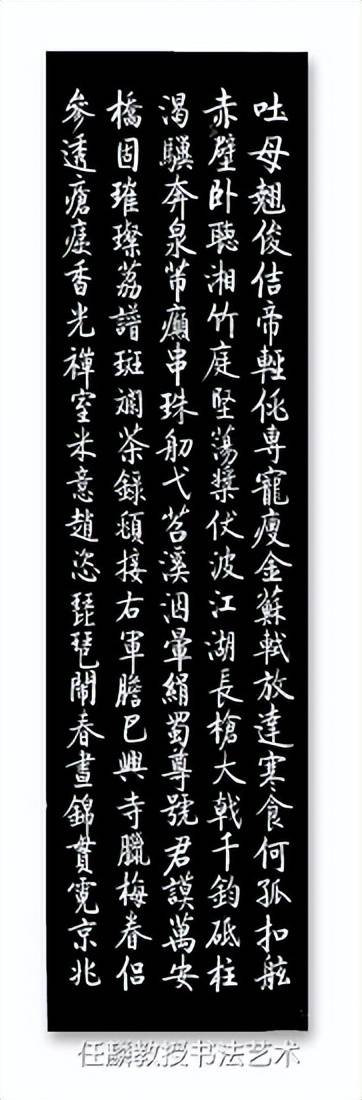 吐母翹俊佶帝輕佻専寵瘦金蘇軾放達寒食何孤扣舷
赤壁卧聽湘竹庭堅蕩槳伏波江湖長槍大戟千鈞砥柱
渴驥奔泉芾癲串珠舠弋苕溪洇暈絹蜀尊號君謨萬安
橋固璀璨荔譜斑斕茶錄頓接右軍膽巴興寺臘梅春侶
參透瘡痍香光禪室米意趙恣琵琶鬧春晝錦貫霓京兆
任麟教授书法艺术